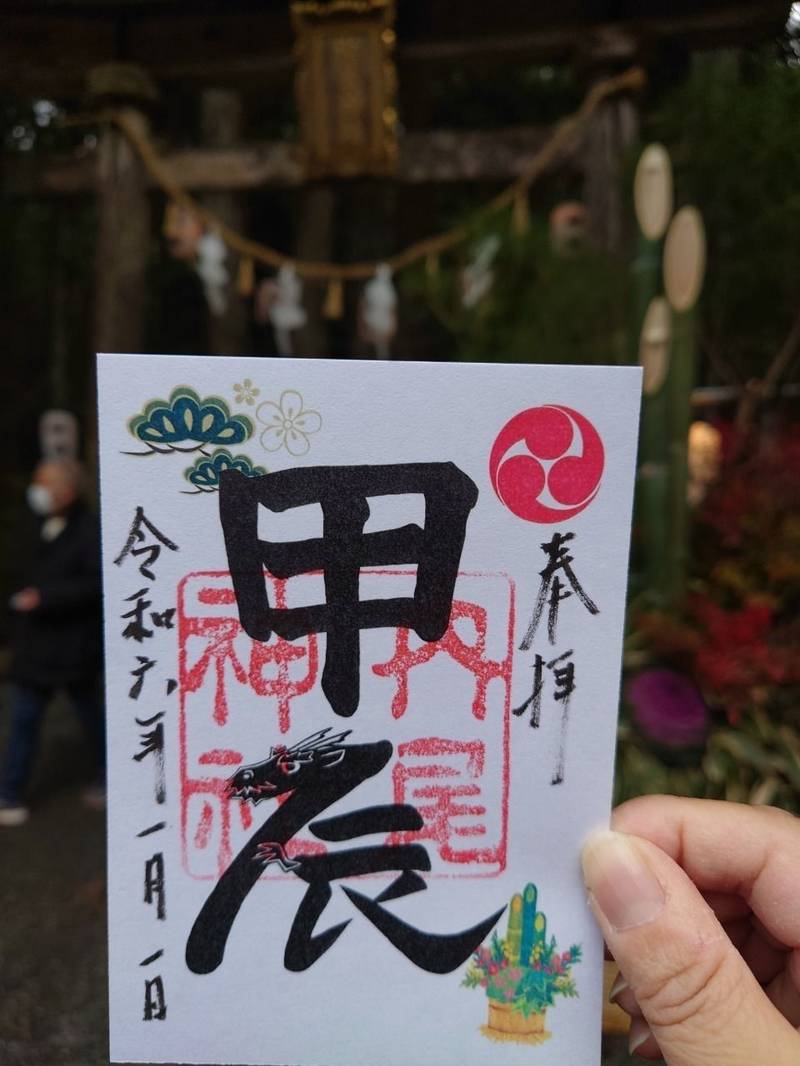 奉拝
甲辰
内尾
神社
令和六年一月一日